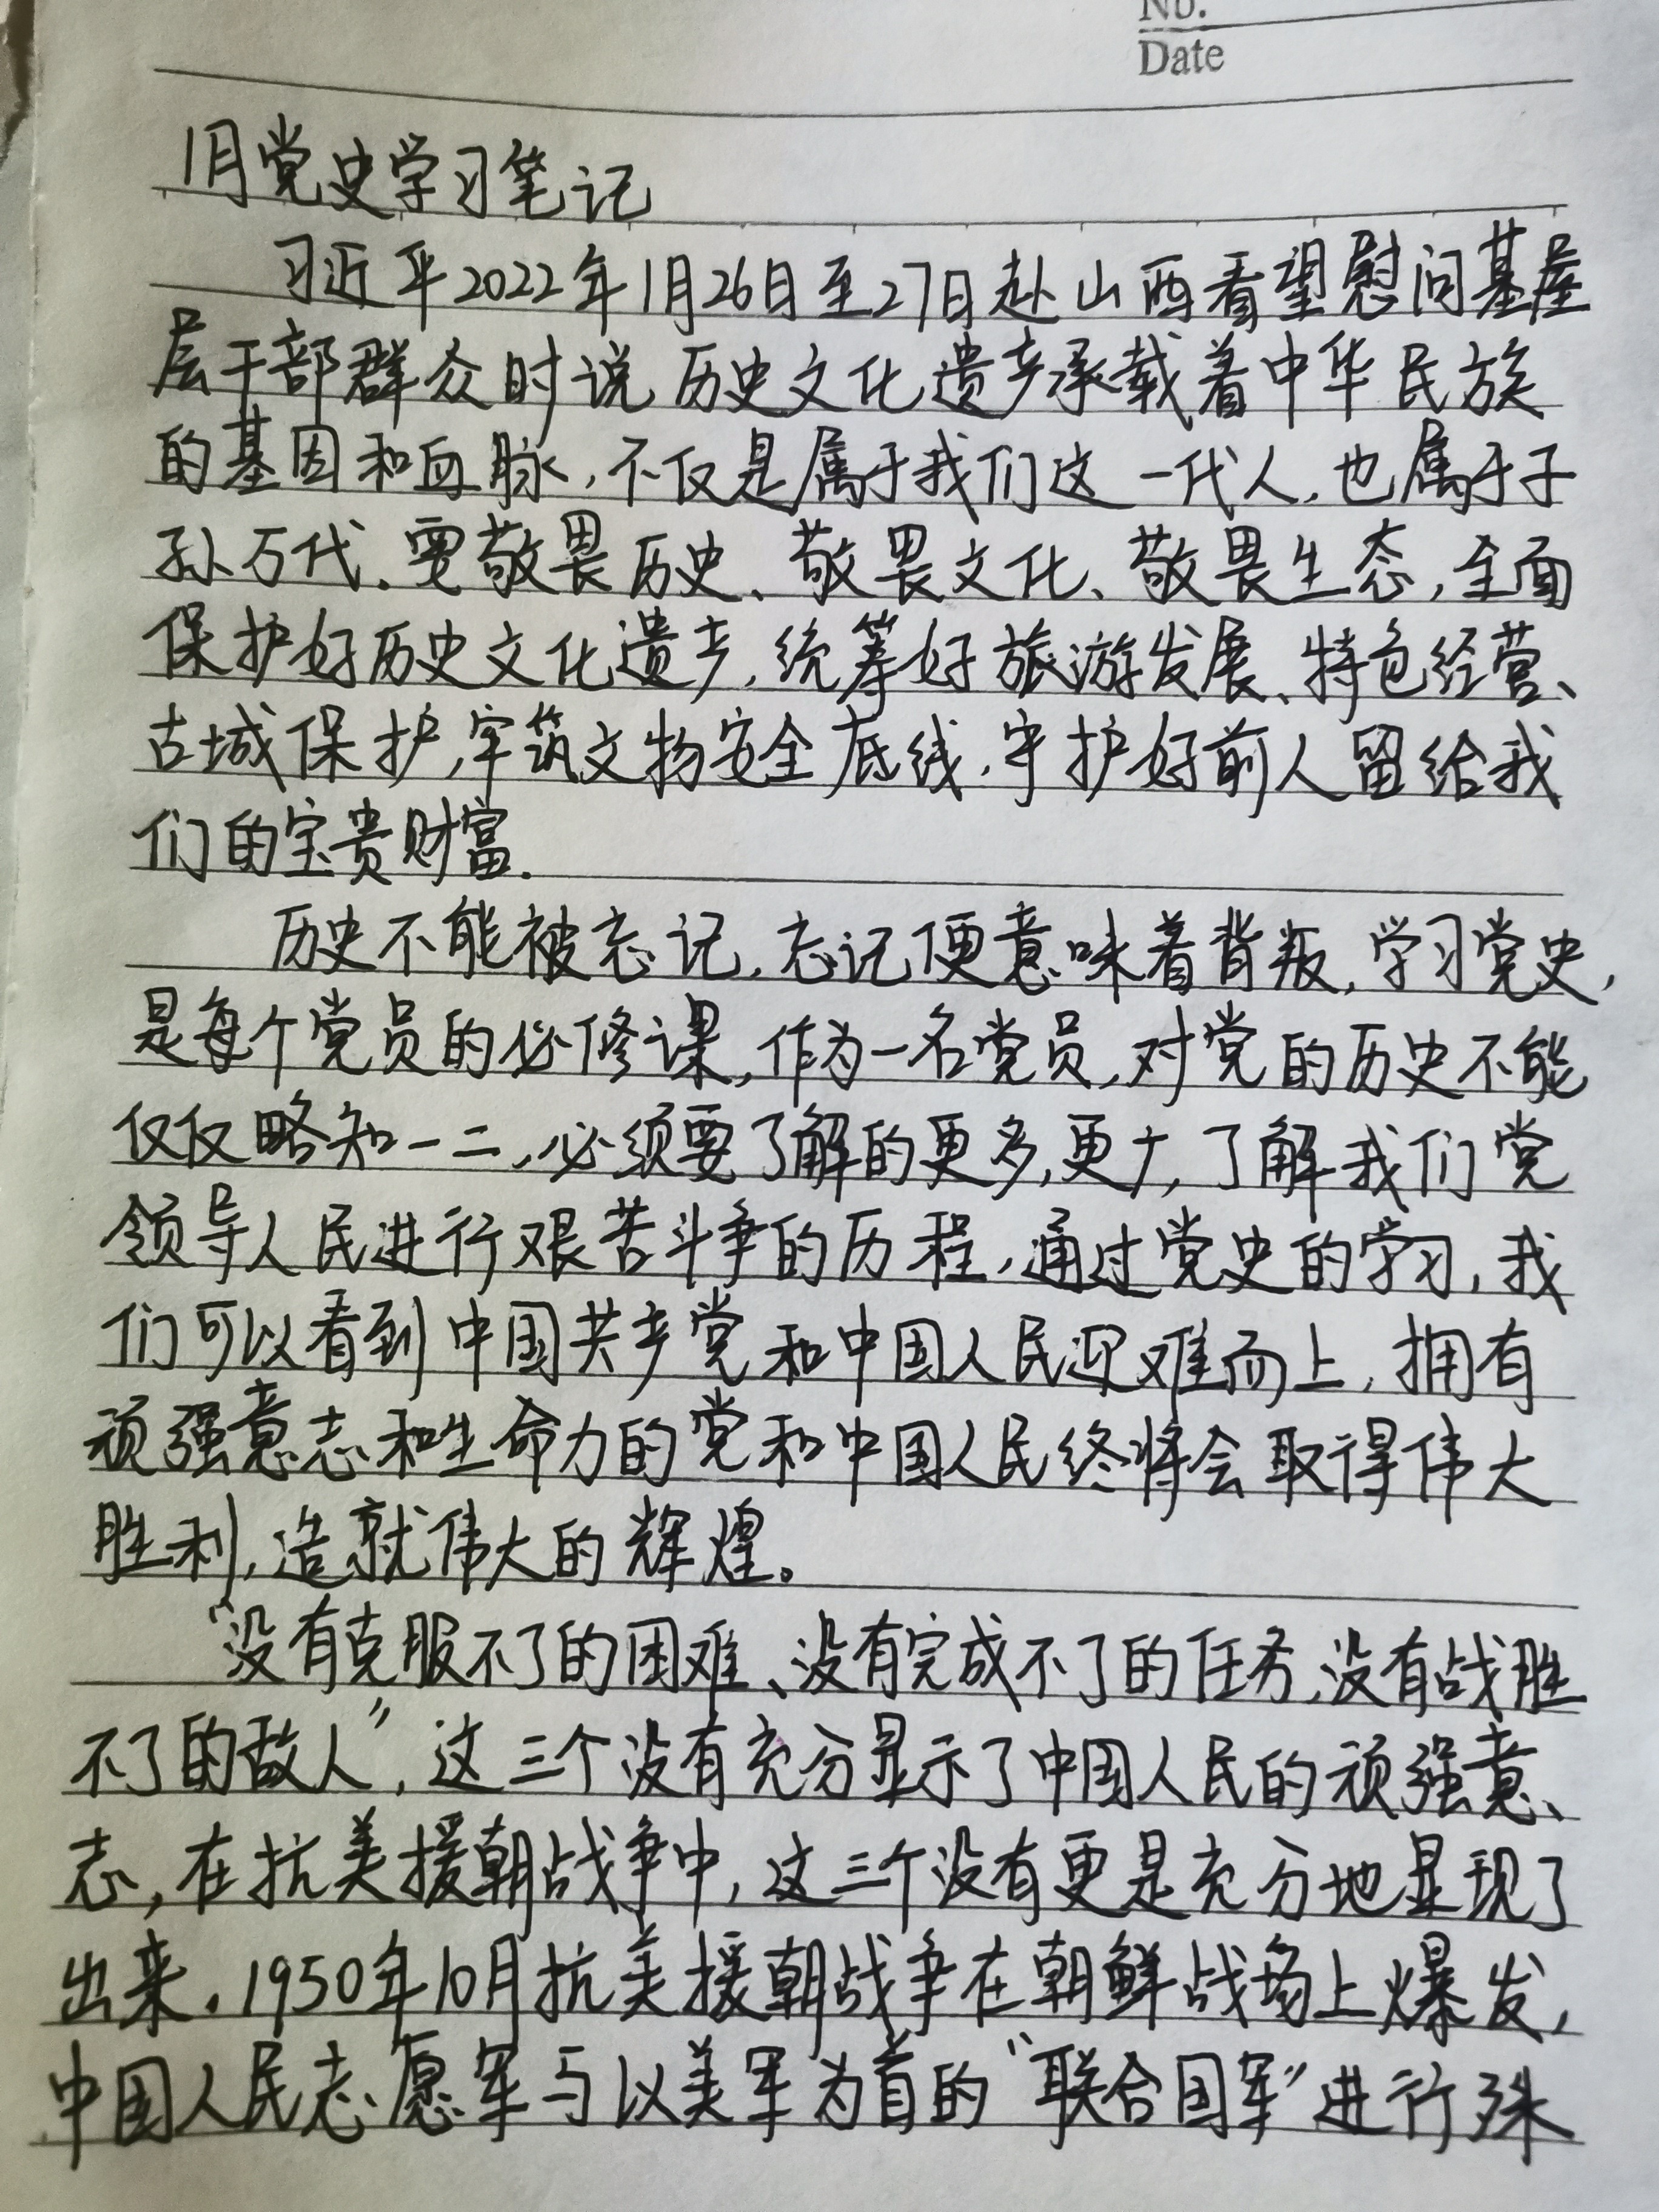 No.
Date
1月党史学习笔记
习近平2022年1月26日至27日赴山西看望慰问基层
层干部群众时说历史文化遗产承载着中华民族
的基因和血脉,不仅是属于我们这一代人,也属于子
孙万代.要敬畏历史、敬畏文化、敬畏生态,全面
保护好历史文化遗产,统筹好旅游发展、特色经营、
古城保护,牢筑文物安全底线,守护好前人留给我
们的宝贵财富.
历史不能被忘记,忘记便意味着背叛,学习党史,
是每个党员的必修课,作为一名党员,对党的历史不能
仅仅略知一二,必须要了解的更多,更广,了解我们党
领导人民进行艰苦斗争的历程,通过党史的学习,我
们可以看到中国共产党和中国人民迎难而上,拥有
顽强意志和生命力的党和中国人民终将会取得伟大
胜利,造就伟大的辉煌。
“没有克服不了的困难、没有完成不了的任务,没有战胜
不了的敌人”,这三个没有充分显示了中国人民的顽强意、
志,在抗美援朝战争中,这三个没有更是充分地显现了
出来.1950年10月抗美援朝战争在朝鲜战场上爆发,
中国人民志愿军与以美军为首的“联合国军”进行殊